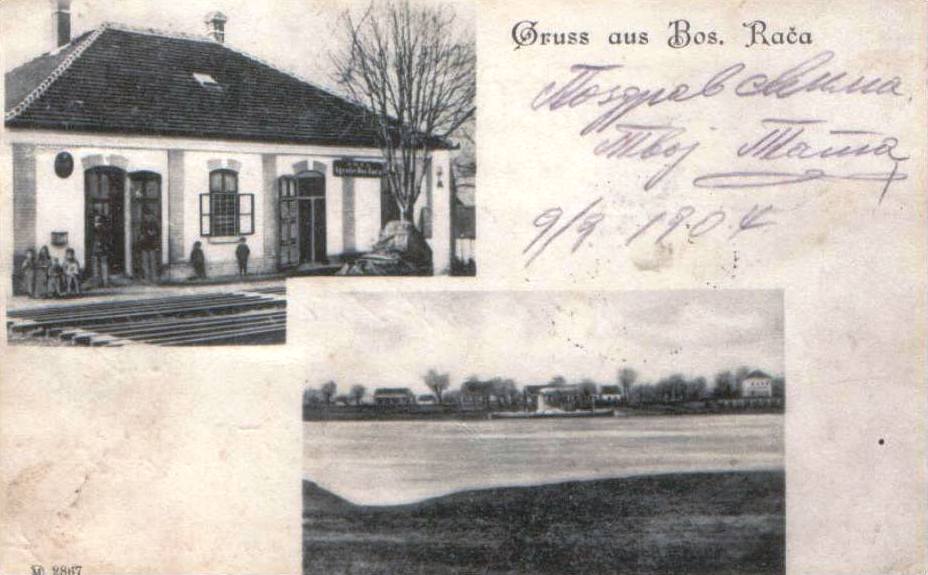 Gruss aus Bos. Rača
Поздрав свима
Твој Тата
9/9. 1904
2867